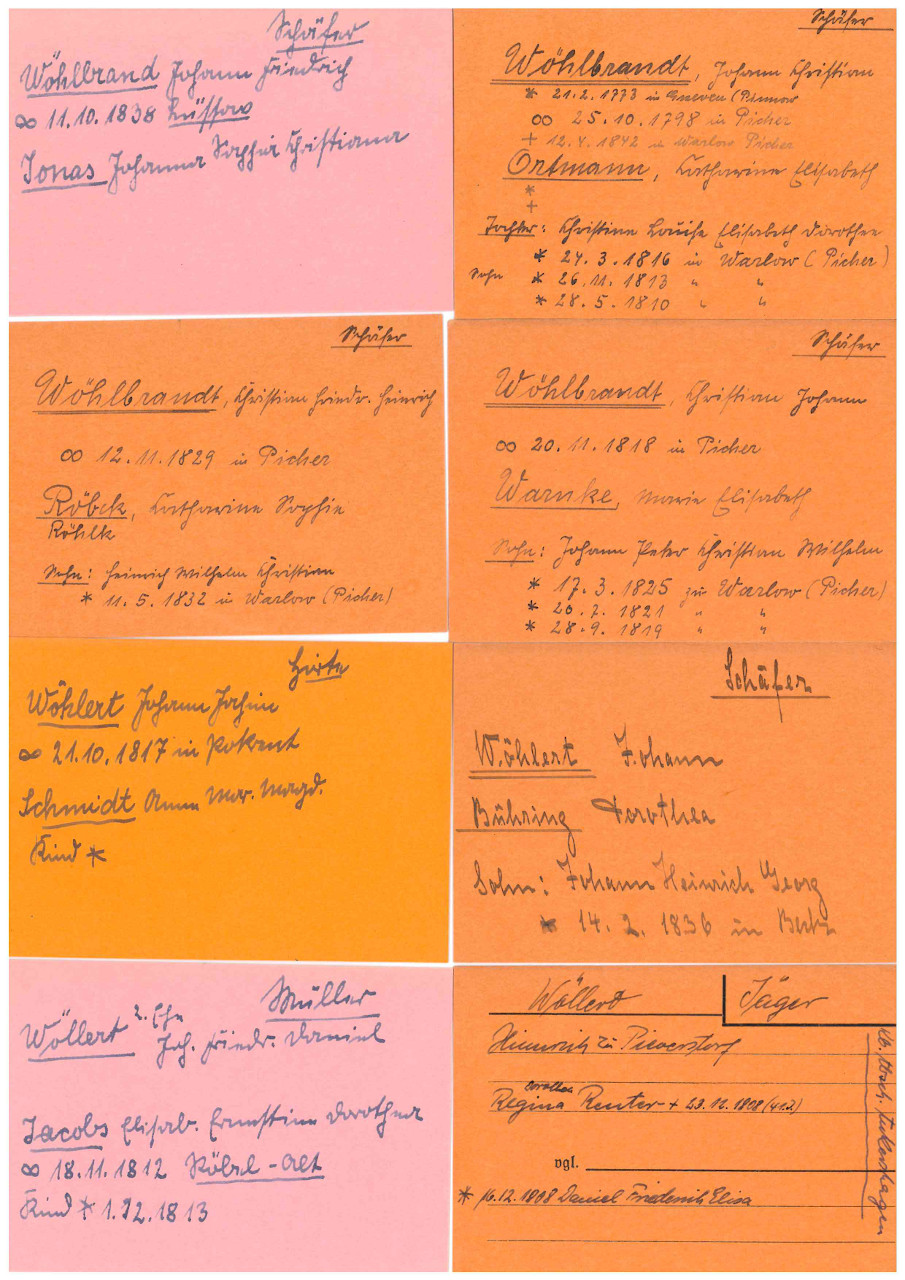 Schäfer
Wöhlbrand Johann Friedrich
∞ 11.10.1838 Lüssow
Jonas Johanna Sophia Christiana
Schäfer
Wöhlbrandt, Johann Christian
* 21.2.1773 in Gneven (Pinnow
∞ 25.10.1798 in Picher
+ 12.4.1842 in Warlow Picher
Ortmann, Catharine Elisabeth
*
+
Tochter: Christine Louise Elisabeth Dorothee
* 24.3.1816 in Warlow (Picher)
Sohn * 26.11.1813 " "
* 28.5.1810 " "
Schäfer
Wöhlbrandt, Christian Friedr. Heinrich
∞ 12.11.1829 in Picher
Röbck, Catharine Sophie
Röhlk
Sohn: Heinrich Wilhelm Christian
* 11.5.1832 in Warlow (Picher)
Schäfer
Wöhlbrandt, Christian Johann
∞ 20.11.1818 in Picher
Warnke, Marie Elisabeth
Sohn: Johann Peter Christian Wilhelm
* 17.3.1825 zu Warlow (Picher)
* 20.7.1821 " "
* 28.9.1819 " "
Hirte
Wöhlert Johann Jochim
∞ 21.10.1817 in Pokrent
Schmidt Anna Mar. Magd.
Kind *
Schäfer
Wöhlert Johann
Bühring Dorothea
Sohn: Johann Heinrich Georg
* 14.2.1836 in
Müller
Wöllert 2. Ehe
Joh. Friedr. Daniel
Jacobs Elisab. Ernestine Dorothea
∞ 18.11.1812 Röbel-Alt
Kind * 1.12.1813
Wöllert Jäger
Heinrich zu Pieverstorf
Dorothea
Regina Reuter + 23.12.1808 (41J.)
vgl.
* 16.12.1808 Daniel Friederich Elisa